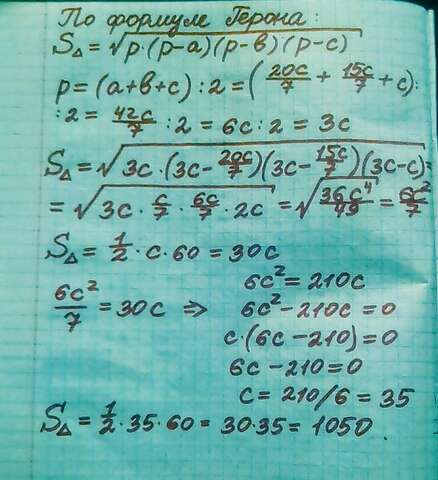 По формуле Герона:
S△ = √p·(p-a)(p-в)·(p-c)
p=(a+в+c):2=(20c/7 + 15c/7 + c):
:2 = 42c/7 :2 = 6c:2 = 3c
S△ = √3c·(3c-20c/7)(3c-15c/7)(3c-c) =
= √3c·c/7·6c/7·2c = √36c⁴/49 = 6c²/7
S△ = 1/2·c·60 = 30c
6c²/7 = 30c ⇒ 6c² = 210c
6c²-210c = 0
c·(6c-210)=0
6c-210=0
c = 210/6 = 35
S△ = 1/2·35·60 = 30·35 = 1050